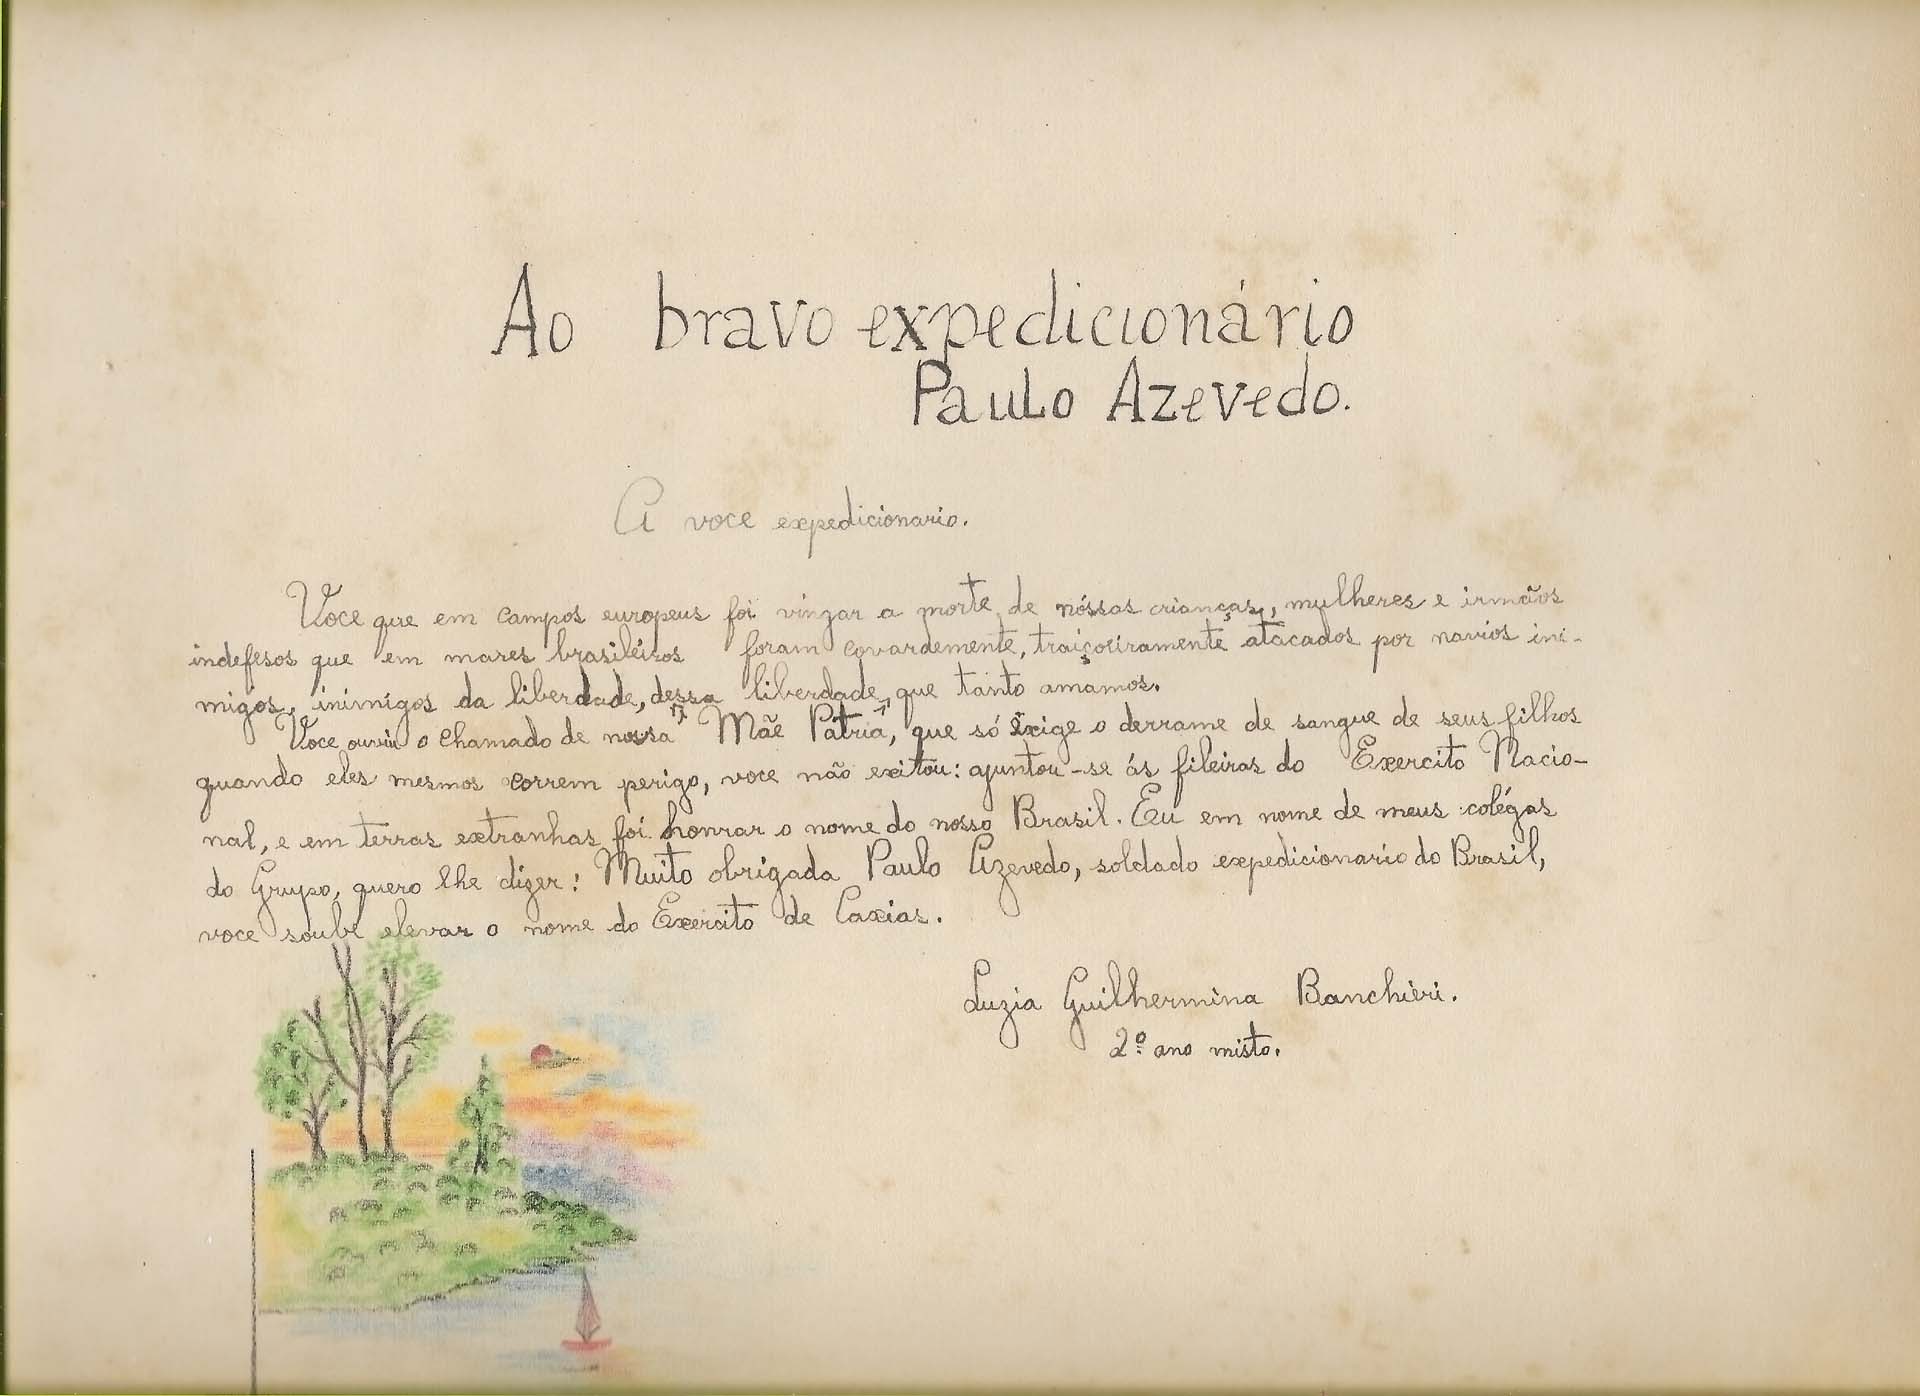 Ao bravo expedicionário
Paulo Azevedo.
A voce expedicionario.
Voce que em campos europeus foi vingar a morte de nóssas crianças, mulheres e irmãos
indefesos que em mares brasileiros foram covardemente, traiçoeiramente atacados por navios ini-
migos, inimigos da liberdade, dessa liberdade, que tanto amamos.
Voce ouviu o chamado de nossa "Mãe Patria", que só exige o derrame de sangue de seus filhos
quando eles mesmos correm perigo, voce não exitou: ajuntou-se ás fileiras do Exercito Nacio-
nal, e em terras extranhas foi honrar o nome do nosso Brasil. Eu em nome de meus colégas
do Grupo, quero lhe dizer: Muito obrigada Paulo Azevedo, soldado expedicionario do Brasil,
voce soube elevar o nome do Exercito de Caxias.
Luzia Guilhermina Banchieri.
2º ano misto.